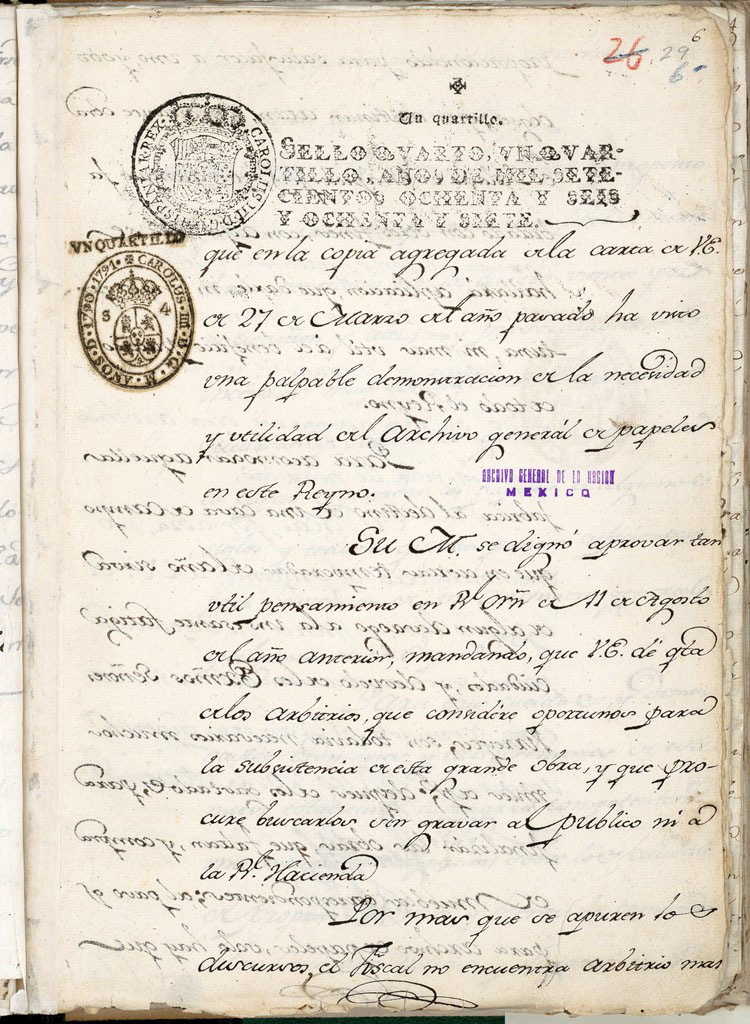 26 29 6
6
Un quartillo.
CAROLUS III D G HISPANIAR REX
SELLO QVARTO, VN QVAR-
TILLO, AÑOS DE MIL SETE-
CIENTOS OCHENTA Y SEIS
Y OCHENTA Y SIETE.
VN QUARTILLO
CAROLUS IIII D. G. AÑOS D. 1790. 1791.
S 4
que en la copia agregada de la carta de V.E.
de 27 de Marzo del año pasado ha visto
una palpable demonstracion de la necesidad
y utilidad del Archivo general de papeles
en este Reyno.
ARCHIVO GENERAL DE LA NACION
MEXICO
Su M. se dignó aprovar tan
util pensamiento en Rl. Orñ de 11 de Agosto
del año anterior, mandando, que V.E. dé qta
de los arbitrios, que considere oportunos para
la subsistencia de esta grande obra, y que pro-
cure buscarlos sin gravar al publico ni a
la Rl. Hacienda
Por mas que se apuren los
discursos, el Fiscal no encuentra arbitrio mas